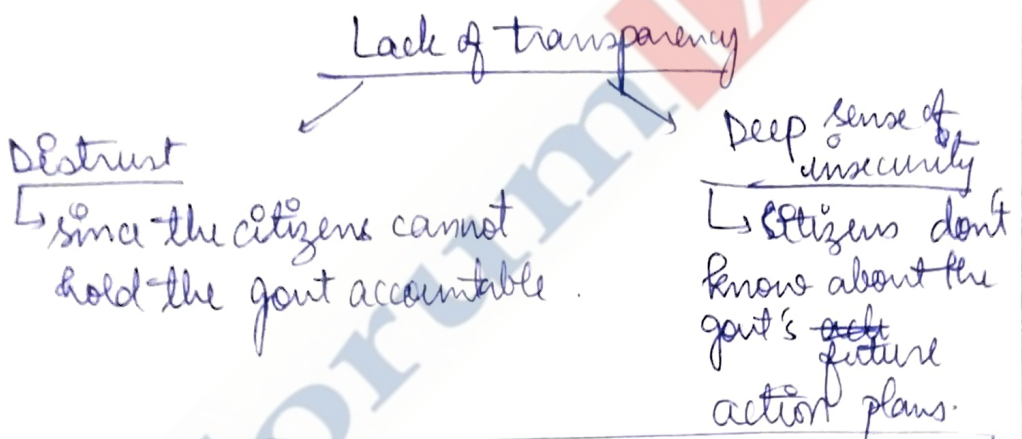 Lack of transparency
Distrust
since the citizens cannot
hold the govt accountable.
Deep sense of
insecurity
citizens don't
know about the
govt's
future
action plans.
forum